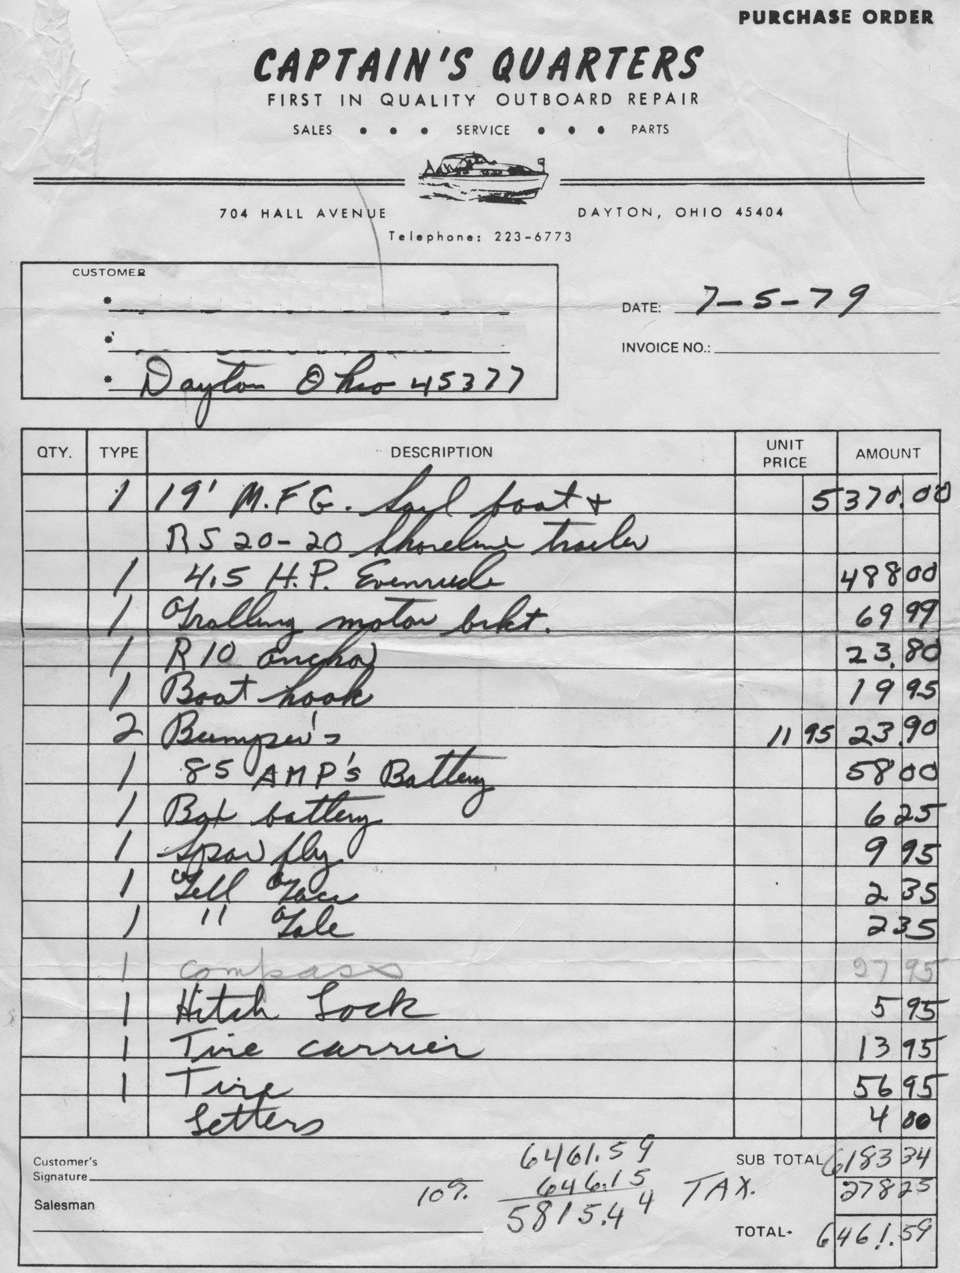 PURCHASE ORDER
CAPTAIN'S QUARTERS
FIRST IN QUALITY OUTBOARD REPAIR
SALES • • • SERVICE • • • PARTS
704 HALL AVENUE DAYTON, OHIO 45404
Telephone: 223-6773
CUSTOMER
DATE: 7-5-79
INVOICE NO.:
Dayton Ohio 45377
QTY. TYPE DESCRIPTION UNIT PRICE AMOUNT
1 19' M.F.G. Sail boat + 5370.00
RS 20-20 Shoreline trailer
1 4.5 H.P. Evenrude 488 00
1 Trolling motor brkt. 69 99
1 R 10 anchor 23.80
1 Boat hook 19 95
2 Bumper's 11 95 23.90
1 85 AMP's Battery 58 00
1 Box battery 6 25
1 Spar fly 9 95
1 Tell Tale 2 35
1 " Tale 2 35
1 compass 27 95
1 Hitch Lock 5 95
1 Tire carrier 13 95
1 Tire 56 95
Letters 4 00
Customer's Signature
Salesman
10%
6461.59
646.15
5815.44
SUB TOTAL 6183 34
TAX. 278 25
TOTAL• 6461.59